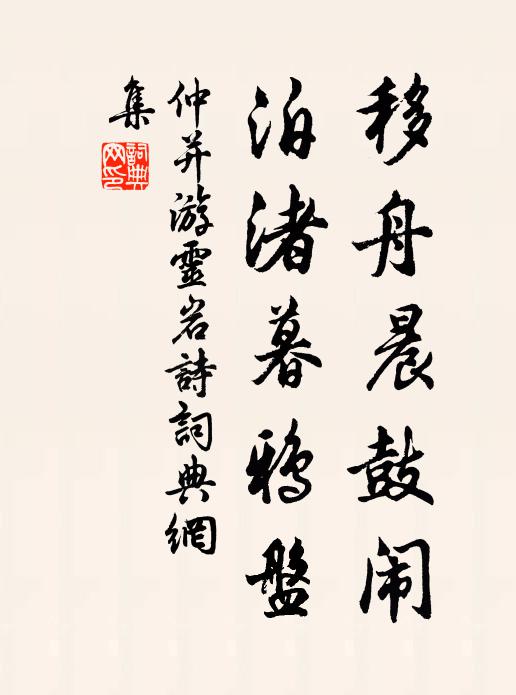 移舟晨鼓闹
泊渚暮鸦盤
仲并游靈岩詩詞典網
集
詞典網印